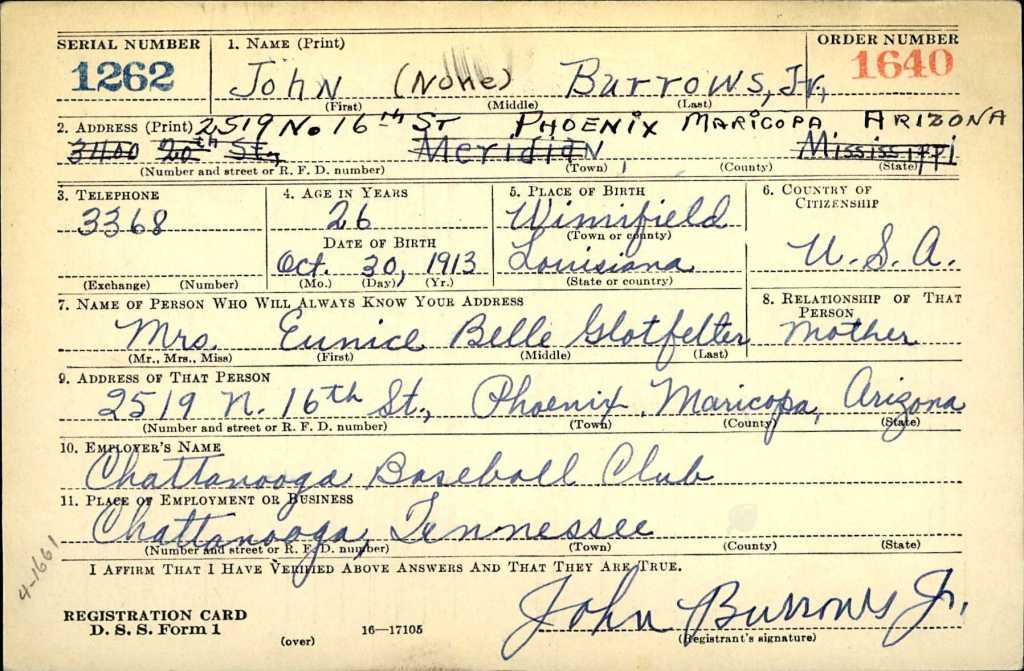 SERIAL NUMBER 1. NAME (Print) ORDER NUMBER
1262 John (None) Burrows, Jr., 1640
(First) (Middle) (Last)
2. ADDRESS (Print) 2519 No 16th ST PHOENIX MARICOPA ARIZONA
3400 20th St., Meridian Mississippi
(Number and street or R. F. D. number) (Town) (County) (State)
3. TELEPHONE 4. AGE IN YEARS 5. PLACE OF BIRTH 6. COUNTRY OF
CITIZENSHIP
3368 26 Winnfield
DATE OF BIRTH (Town or county)
Oct. 30, 1913 Louisiana U. S. A.
(Exchange) (Number) (Mo.) (Day) (Yr.) (State or country)
7. NAME OF PERSON WHO WILL ALWAYS KNOW YOUR ADDRESS 8. RELATIONSHIP OF THAT
PERSON
Mrs. Eunice Belle Glotfelter Mother
(Mr., Mrs., Miss) (First) (Middle) (Last)
9. ADDRESS OF THAT PERSON
2519 N. 16th St., Phoenix, Maricopa, Arizona
(Number and street or R. F. D. number) (Town) (County) (State)
10. EMPLOYER'S NAME
Chattanooga Baseball Club
11. PLACE OF EMPLOYMENT OR BUSINESS
Chattanooga, Tennessee
(Number and street or R. F. D. number) (Town) (County) (State)
I AFFIRM THAT I HAVE VERIFIED ABOVE ANSWERS AND THAT THEY ARE TRUE.
4-1661
REGISTRATION CARD John Burrows Jr.
D. S. S. Form 1 (over) 16—17105 (Registrant's signature)